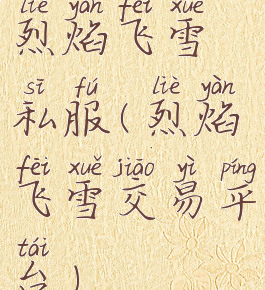 liè yàn fēi xuě
烈焰飞雪
sī fú liè yàn
私服(烈焰
fēi xuě jiāo yì píng
飞雪交易平
tái
台)